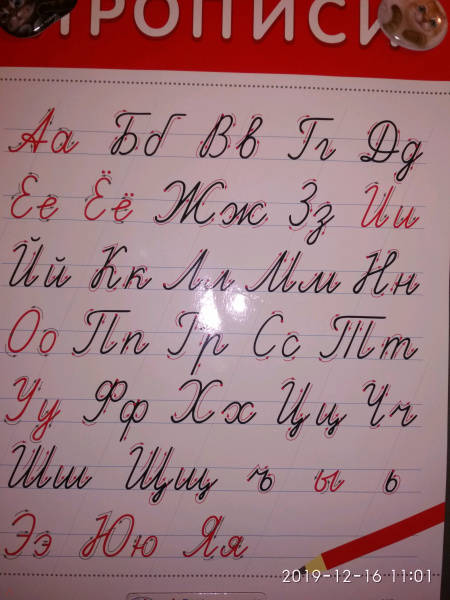 ПРОПИСИ
Аа Бб Вв Гг Дд
Ее Ёё Жж Зз Ии
Йй Кк Лл Мм Нн
Оо Пп Рр Сс Тт
Уу Фф Хх Цц Чч
Шш Щщ ъ ы ь
Ээ Юю Яя
2019-12-16 11:01